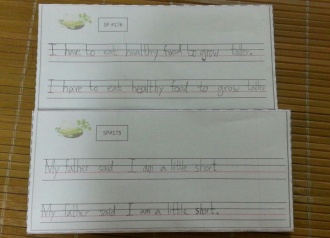 SP #176
I have to eat healthy food to grow taller.
I have to eat healthy food to grow taller
SP#175
My father said I am a little short
My father said I am a little short.